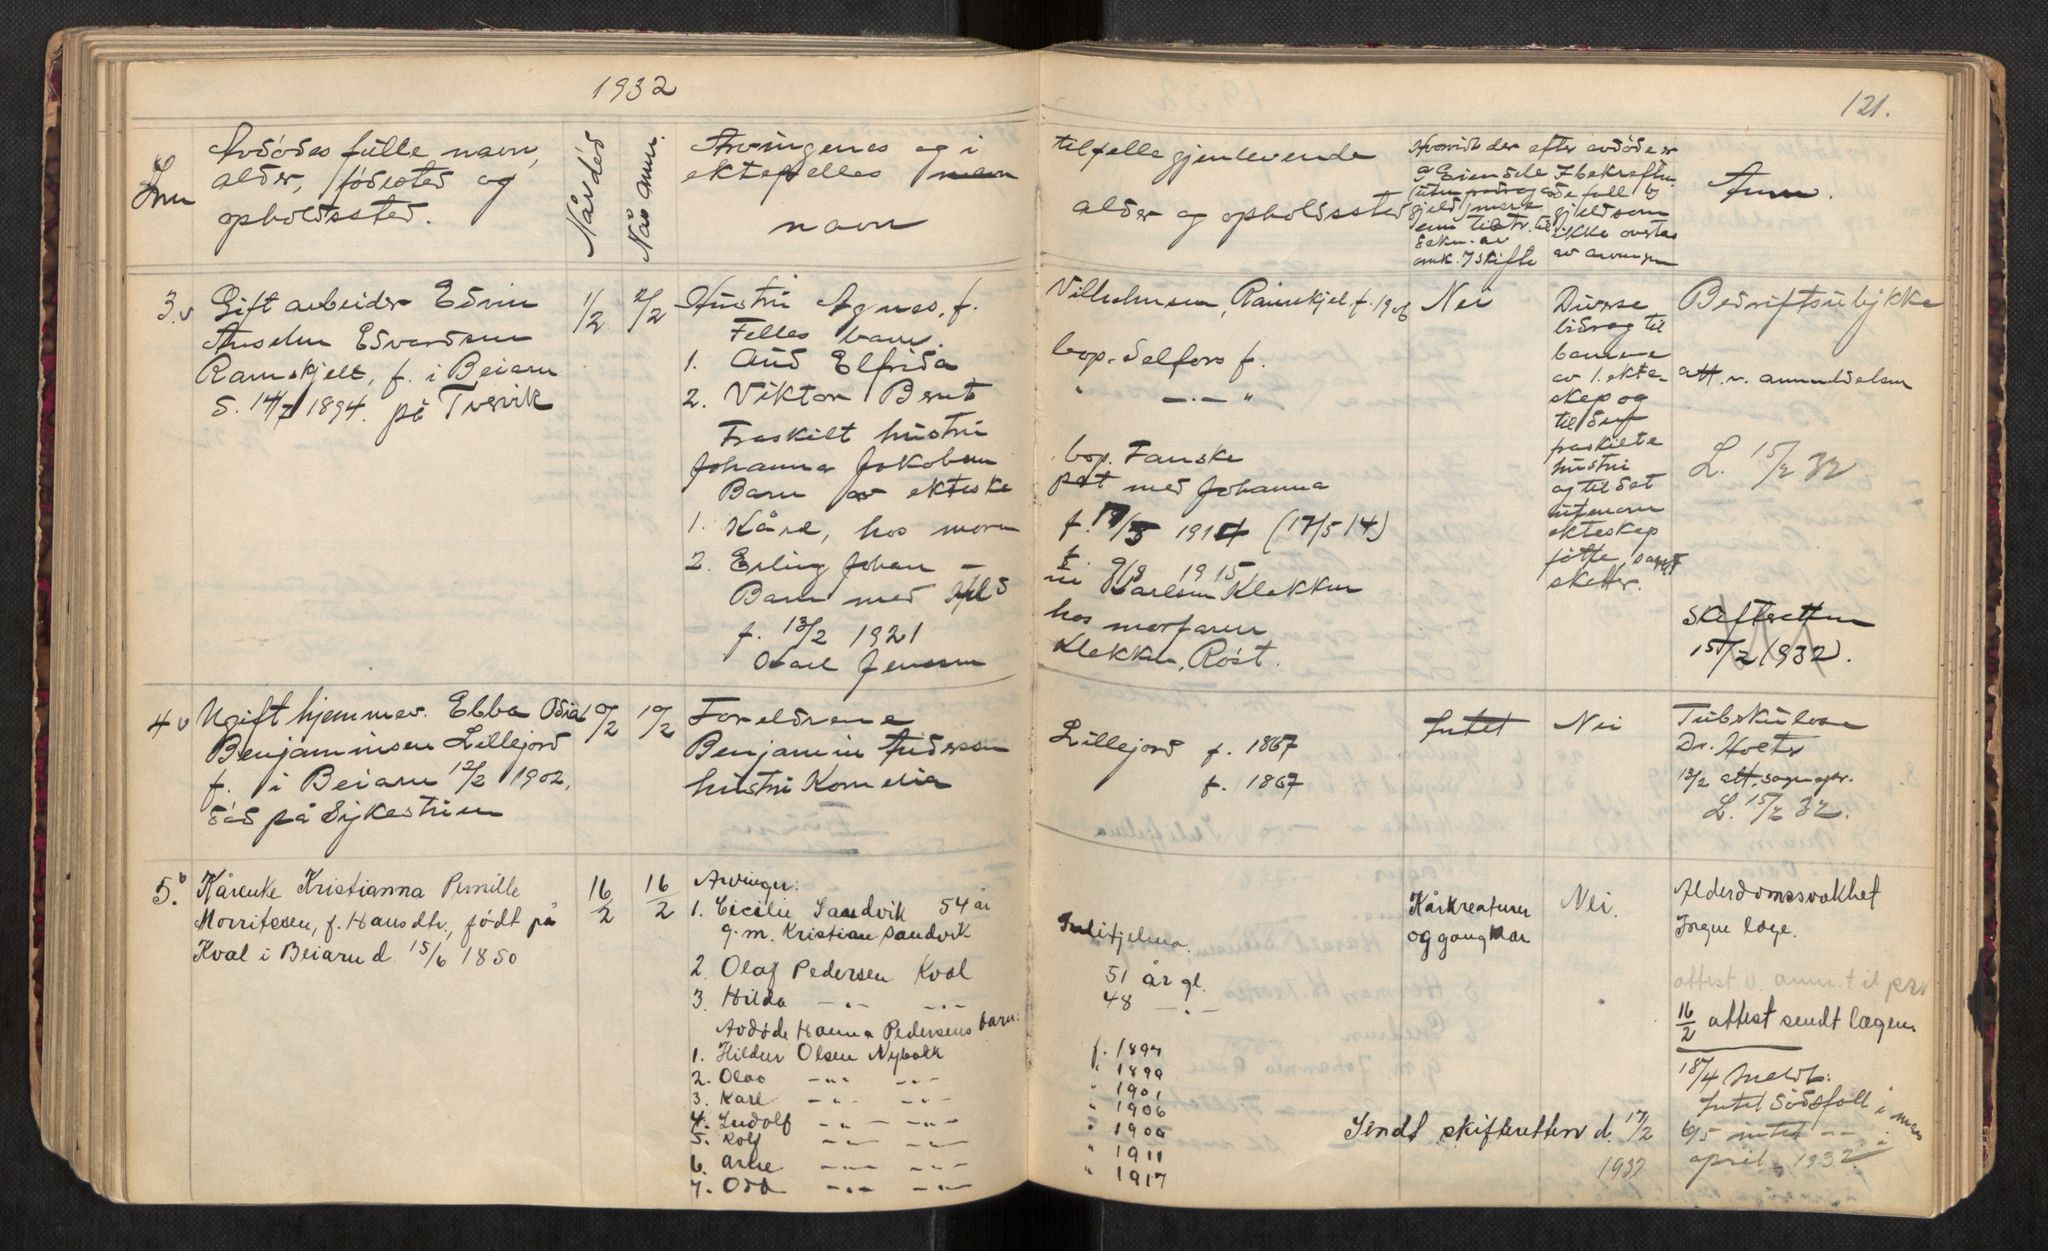 1932
121.
Lnr
Avdødes fulle navn,
alder, fødested og
opholdssted.
Når død
Når anm.
Arvingenes og i
ektefelles navn
navn
tilfelle gjenlevende
alder og opholdssted
Hvorvidt der efter avdøde er
gjeld
ikke overtas
av arvingen
Anm.
3.
Gift arbeider Edvin
Anselm Edvardsen
Ramskjell, f. i Beiarn
d. 14/7 1894. på Tvervik
1/2
2/2
Hustru Agnes, f.
Felles barn.
1. Aud Elfrida
2. Viktor Bernt
Fraskilt hustru
Johanna Jakobsen
Barn av ekteska
1. Kåre, hos moren
2. Erling Johan —
Barn med
f. 13/2 1921
Jenssen
Vilhelmsen, Ramskjel f. 1906
bop. Selfors f.
" —.— "
bop. Fauske
pet med Johanna
f. 17/5 1914 (17/5 14)
9/9 1915
Karlsen Klakken
hos morfaren
Klakken, Røst.
Nei
Diverse
bidrag til
barnene
av 1. ekte-
skap og
til den
fraskilte
hustru
og til det
utenom
ekteskap
fødte, samt
skatter.
Bedriftsulykke
att. v. anmeldelsen
L. 15/2 32
Skifteretten
15/2 1932.
4
Ugift hjemmev. Ebba Odia
Benjaminsen Lillejord
f. i Beiarn 12/2 1902,
død på Sykestuen
10/2
10/2
Foreldrene
Benjamin Andersen
hustru Kornelia
Lillejord f. 1867
f. 1867
Intet
Nei
Tuberkulose
Dr. Holter
13/2 att.
L. 15/2 32.
5.
Kårenke Kristianna Pernille
Morritssen, f. Hansdtr, født på
Kvæl i Beiarn d. 15/6 1850
16/2
16/2
Arvinger:
1. Cecilie Sandvik 54 år
g. m. Kristian Sandvik
2. Olaf Pedersen Kvæl
3. Hilda —.— —.—
Avdøde Hanna Pedersens barn:
1. Hildur Olsen Nybakk
2. Olav —"— —"—
3. Karl —"— —"—
4. Ludolf —"— —"—
5. Rolf —"— —"—
6. Arne —"— —"—
7. Odd —"— —"—
Sulitjelma.
51 år gl.
48 —.—
f. 1897
" 1899
" 1901
" 1906
" 1908
" 1911
" 1917
Kårkreaturer
og gangklær
Nei.
Alderdomssvakhet
Ingen læge.
attest v. anm. til
16/2 attest sendt lægen
18/4 Meldt:
Intet dødsfall i mars
6/5 intet — i
april 1932.
Sendt skifteretten d. 17/2
1932